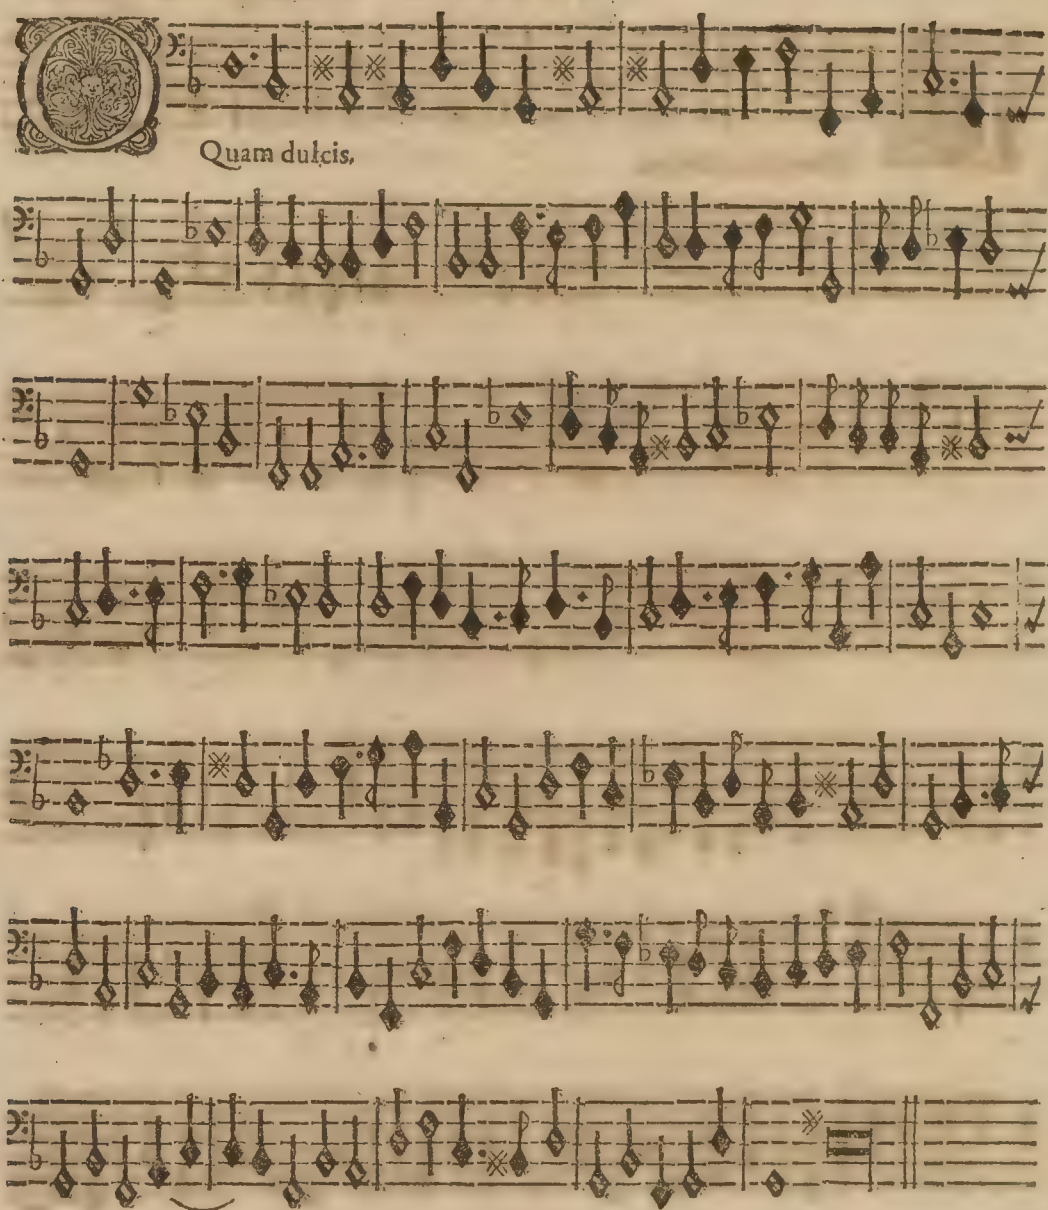 O
Quam dulcis,